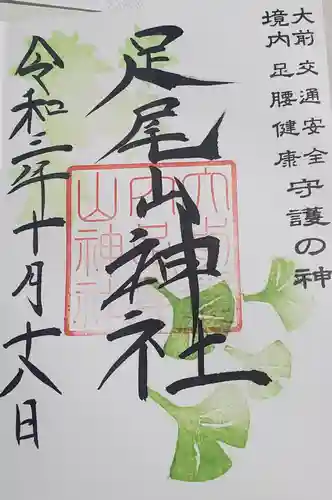 大前 交通安全守護の神
境内 足腰健康
足尾山神社
令和二年十月十八日